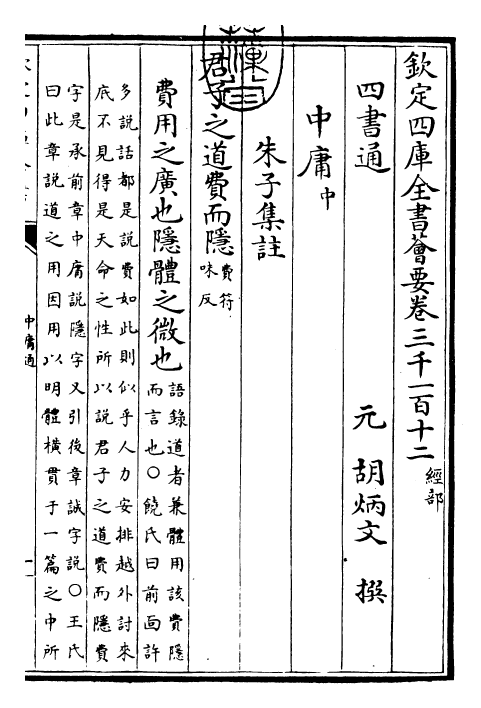 欽定四庫全書薈要卷三千一百十二 經部
四書通 元 胡炳文 撰
中庸中
朱子集註
君子之道費而隱 費符
味反
費用之廣也隱體之微也 語錄道者兼體用該費隱
而言也○饒氏曰前面許
多說話都是說費如此則似乎人力安排越外討來
底不見得是天命之性所以說君子之道費而隱費
字是承前章中庸說隱字又引後章誠字說○王氏
曰此章說道之用因用以明體橫貫于一篇之中所
中庸通